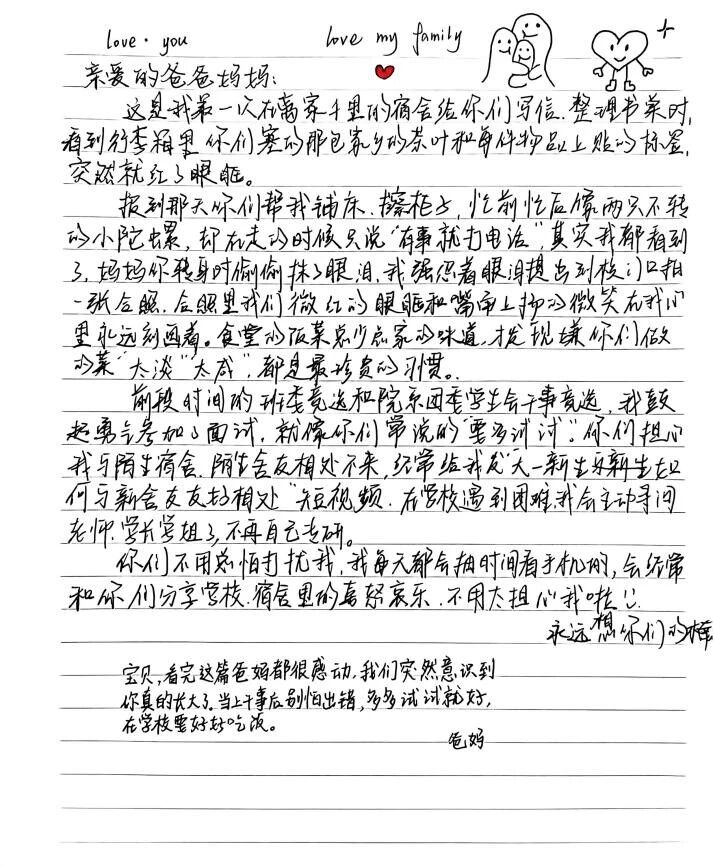 love · you
love my family
亲爱的爸爸妈妈:
这是我第一次在离家千里的宿舍给你们写信.整理书桌时,
看到行李箱里你们塞的那包家乡的茶叶和每件物品上贴的标签,
突然就红了眼眶。
报到那天你们帮我铺床.擦柜子,忙前忙后像两只不转
的小陀螺,却在走的时候只说"有事就打电话",其实我都看到
了,妈妈你转身时偷偷抹了眼泪,我强忍着眼泪提出到校门口拍
一张合照.合照里我们微红的眼眶和嘴角上扬的微笑在我心
里永远刻画着。食堂的饭菜总少点家的味道,才发现嫌你们做
的菜"太淡""太咸",都是最珍贵的习惯。
前段时间的班委竞选和院系团委学生会干事竞选,我鼓
起勇气参加了面试,就像你们常说的"要多试试"。你们担心
我与陌生宿舍.陌生舍友相处不来,经常给我发"大一新生与新生如
何与新舍友友好相处"短视频.在学校遇到困难我会主动寻问
老师.学长学姐了,不再自己专研。
你们不用总怕打扰我,我每天都会抽时间看手机的,会经常
和你们分享学校.宿舍里的喜怒哀乐.不用太担心我啦
永远想你们的
宝贝,看完这篇爸妈都很感动,我们突然意识到
你真的长大了.当上干事后别怕出错,多多试试就好,
在学校要好好吃饭。
爸妈